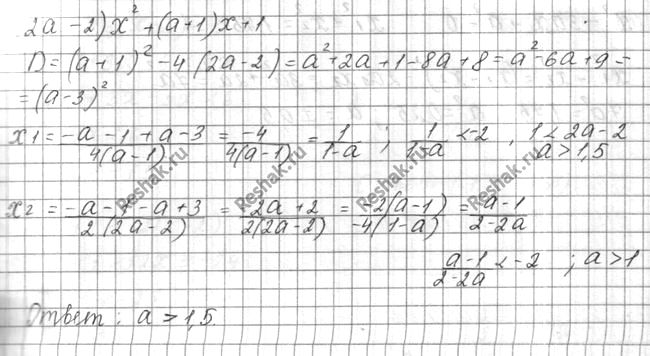 2a - 2)x² + (a+1)x + 1
D = (a+1)² - 4(2a-2) = a² + 2a + 1 - 8a + 8 = a² - 6a + 9 =
= (a-3)²
x1 = \frac{-a - 1 + a - 3}{4(a-1)} = \frac{-4}{4(a-1)} = \frac{1}{1-a} ; \frac{1}{1-a} < -2 , 1 < 2a - 2
a > 1,5
x2 = \frac{-a - 1 - a + 3}{2(2a-2)} = \frac{-2a + 2}{2(2a-2)} = \frac{-2(a-1)}{-4(1-a)} = \frac{a-1}{2-2a}
\frac{a-1}{2-2a} < -2 ; a > 1
Ответ: a > 1,5.
Reshak.ru
Reshak.ru
Reshak.ru
Reshak.ru